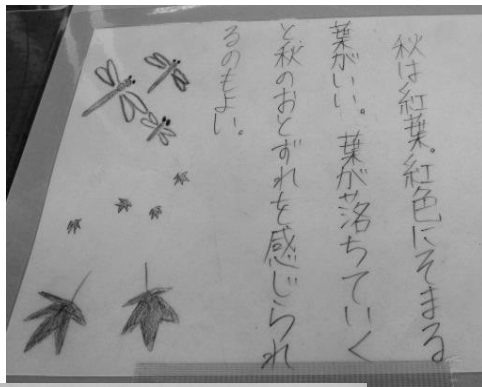 秋は紅葉。紅色にそまる
葉がいい。葉が落ちていく
と秋のおとずれを感じられ
るのもよい。